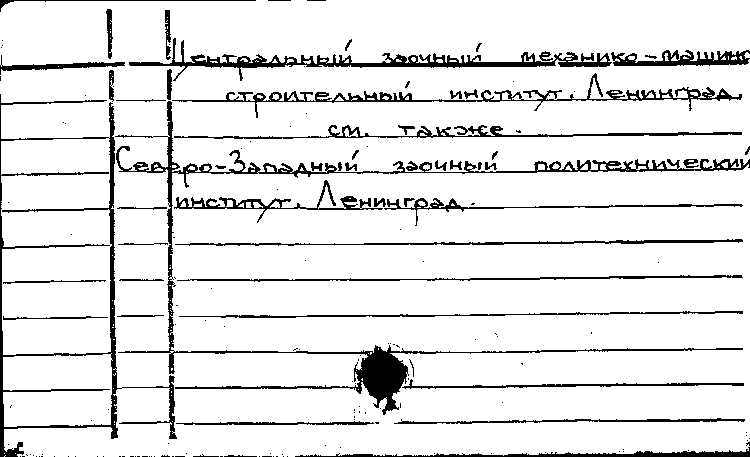 Центральный заочный механико-машино
строительный институт. Ленинград.
см. также.
Северо-Западный заочный политехнический
институт. Ленинград.